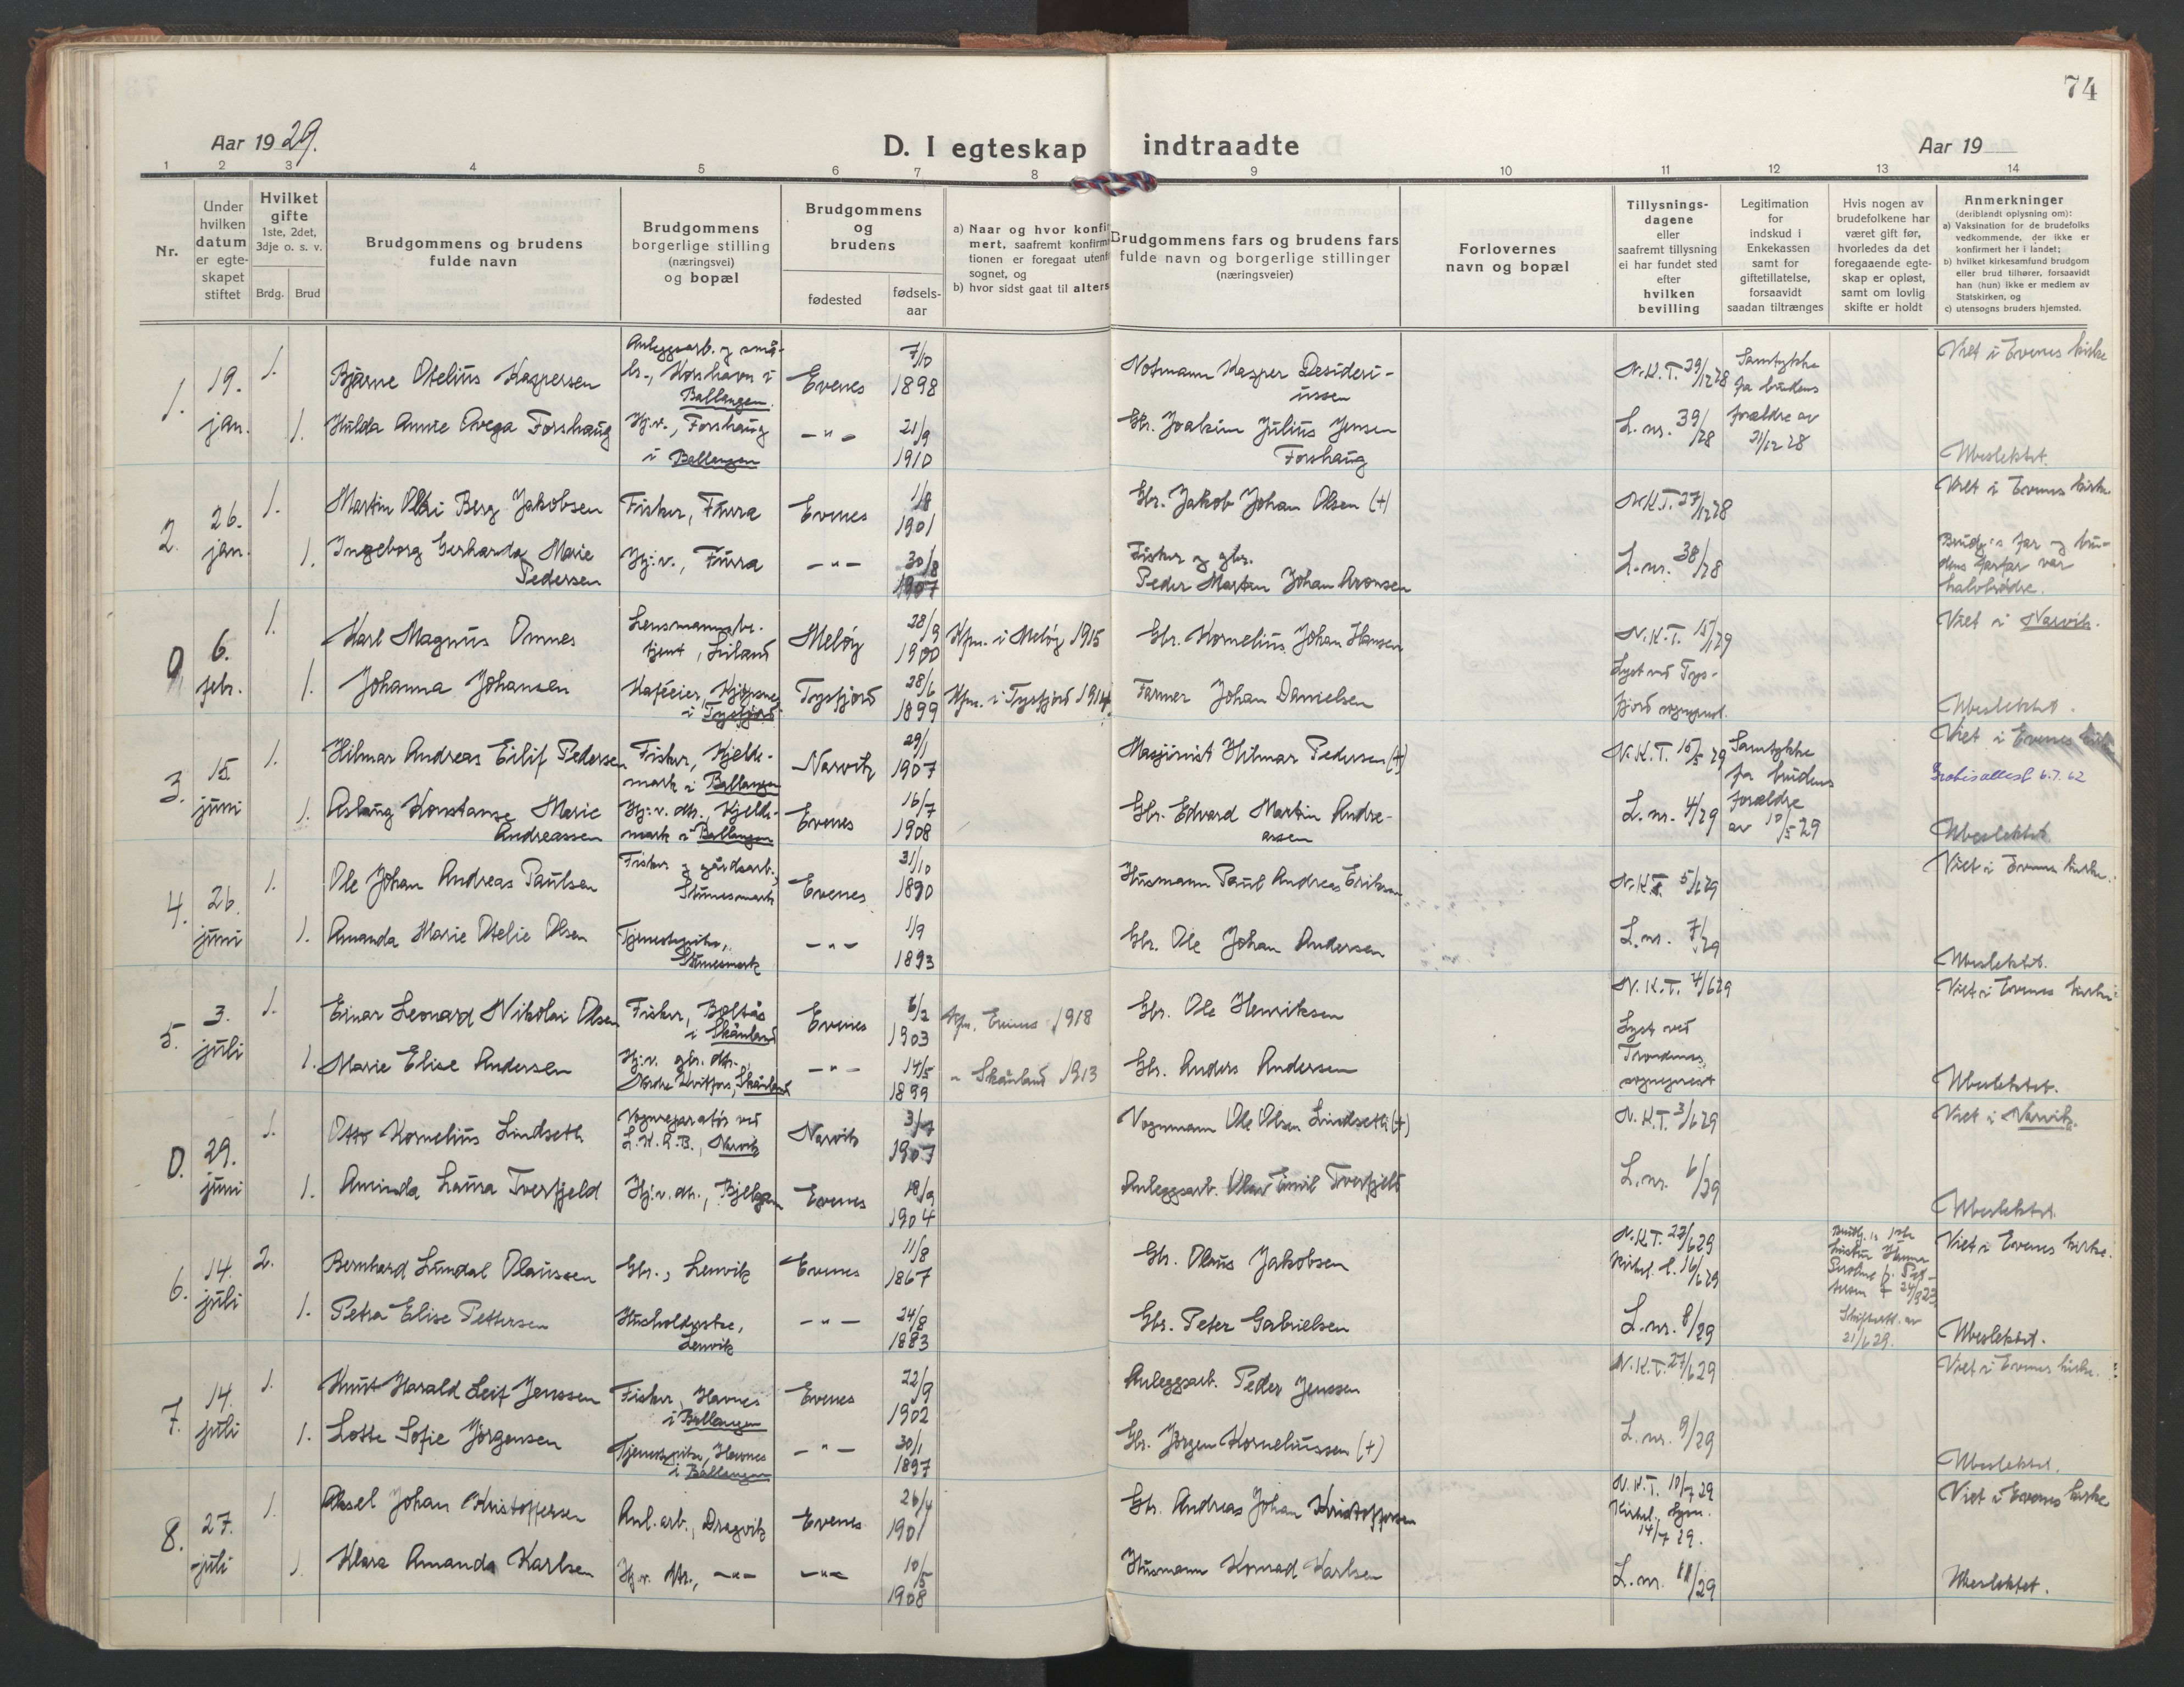 74
Aar 1929.
D. I egteskap indtraadte
Aar 19
1 2 3 4 5 6 7 8 9 10 11 12 13 14
Nr.
Under hvilken datum er egteskapet stiftet
Hvilket gifte
1ste, 2det, 3dje o. s. v.
Brdg. Brud
Brudgommens og brudens
fulde navn
Brudgommens
borgerlige stilling
(næringsvei)
og bopæl
Brudgommens
og
brudens
fødested
fødsels-
aar
a) Naar og hvor konfir
mert, saafremt konfirm
tionen er foregaat utenf
sognet, og
b) hvor sidst gaat til alters
Brudgommens fars og brudens fars
fulde navn og borgerlige stillinger
(næringsveier)
Forlovernes
navn og bopæl
Tillysnings-
dagene
eller
saafremt tillysning
ei har fundet sted
efter
hvilken
bevilling
Legitimation
for
indskud i
Enkekassen
samt for
giftetillatelse,
forsaavidt
saadan tiltrænges
Hvis nogen av
brudefolkene har
været gift før,
hvorledes da det
foregaaende egte-
skap er opløst,
samt om lovlig
skifte er holdt
Anmerkninger
(deriblandt oplysning om):
a) Vaksination for de brudefolks
vedkommende, der ikke er
konfirmert her i landet;
b) hvilket kirkesamfund brudgom
eller brud tilhører, forsaavidt
han (hun) ikke er medlem av
Statskirken, og
c) utensogns bruders hjemsted.
1. 19. jan. 1.
Bjarne Otelius Kaspersen
Anleggsarb. og små-
br., Korshavn i
Ballangen.
Evenes
7/10
1898
Notmann Kasper Desideri-
ussen
N.K.T. 29/12 28
Samtykke
fra brudens
forældre av
21/12 28
Viet i Evenes kirke
1. Hulda Annie Avega Forshaug
Hj.v., Forshaug
i Ballangen
-"-
21/9
1910
Gbr. Joakim Julius Jensen
Forshaug
L. nr. 39/28
Ubeslektet.
2. 26. jan. 1.
Martin Olai Berg Jakobsen
Fisker, Furra
Evenes
1/8
1901
Gbr. Jakob Johan Olsen (+)
N.K.T. 27/12 28
Viet i Evenes kirke
1. Ingeborg Gerharda Marie
Pedersen
Hj.v., Furra
-"-
30/8
1907
Fisker og gbr.
Peder Martin Johan Aronsen
L. nr. 38/28
Brudg.s far og bru-
dens farfar var
halvbrødre.
0 6. febr. 1.
Karl Magnus Omnes
Lensmannsbe-
tjent, Liland
Meløy
28/9
1900
Kfm. i Meløy 1915
Gbr. Kornelius Johan Hansen
N.K.T. 15/1 29
Viet i Narvik.
1. Johanna Johansen
Kaféeier, Kjøpsnes
i Tysfjord
Tysfjord
28/6
1899
Kfm. i Tysfjord 1914
Farmer Johan Danielsen
Lyst ved Tys-
fjord sogneprest.
Ubeslektet.
3. 15. juni 1.
Hilmar Andreas Eilif Pedersen
Fisker, Kjelde-
mark i Ballangen
Narvik
29/1
1907
Masjinist Hilmar Pedersen (+)
N.K.T. 15/5 29
Samtykke
fra brudens
forældre
av 10/5 29
Viet i Evenes kirke
6.7.62
1. Aslaug Konstanse Marie
Andreassen
Hj.v. dtr., Kjelde-
mark i Ballangen
Evenes
16/7
1908
Gbr. Edvard Martin Andre-
assen
L. nr. 4/29
Ubeslektet
4. 26. juni 1.
Ole Johan Andreas Paulsen
Fisker og gårdsarb.,
Stunesmark
Evenes
31/10
1890
Husmann Paul Andreas Eriksen
N.K.T. 5/6 29
Viet i Evenes kirke.
1. Amanda Marie Otelie Olsen
Tjenestepike,
Stunesmark
-"-
1/9
1893
Gbr. Ole Johan Andersen
L. nr. 7/29
Ubeslektet.
5. 3. juli 1.
Einar Leonard Nikolai Olsen
Fisker, Boltås
i Skånland
Evenes
6/2
1903
Kfm. Evenes 1918
Gbr. Ole Henriksen
N.K.T. 4/6 29
Viet i Evenes kirke
1. Marie Elise Andersen
Hj.v. gbr. dtr.
Nordre Kvitfors, Skånland
-"-
14/5
1899
" Skånland 1913
Gbr. Anders Andersen
Lyst ved
Trondenes
sogneprest
Ubeslektet.
0. 29. juni 1.
Otto Kornelius Lindseth
Vognreparatør ved
L.K.A.B., Narvik
Narvik
3/7
1907
Vognmann Ole Olsen Lindseth (+)
N.K.T. 3/6 29
Viet i Narvik.
1. Aminda Laura Tverfjeld
Hj.v. dtr., Bjelgen
Evenes
18/9
1904
Anleggsarb. Olav Emil Tverfjeld
L. nr. 6/29
Ubeslektet.
6. 14. juli 2.
Bernhard Lundal Olaussen
Gbr., Lenvik
Evenes
11/8
1867
Gbr. Olaus Jakobsen
N.K.T. 22/6 29
Kirkel. l. 16/6 29
Brudg.s 1ste
hustru Hanna
+ 24/9 23
Viet i Evenes kirke.
1. Petra Elise Pettersen
Husholderske,
Lenvik
-"-
24/8
1883
Gbr. Peter Gabrielsen
L. nr. 8/29
Skifteatt. av
21/6 29.
Ubeslektet.
7. 14. juli 1.
Knut Harald Leif Jenssen
Fisker, Havnes
i Ballangen
Evenes
22/9
1902
Anleggsarb. Peder Jenssen
N.K.T. 27/6 29
Viet i Evenes kirke.
1. Lotte Sofie Jørgensen
Tjenestepike, Havnes
i Ballangen
-"-
30/1
1897
Gbr. Jørgen Korneliussen (+)
L. nr. 9/29
Ubeslektet.
8. 27. juli 1.
Aksel Johan Kristoffersen
Anl. arb., Dragvik
Evenes
26/4
1901
Gbr. Andreas Johan Kristoffersen
N.K.T. 10/7 29
Kirkel. lysn.
14/7 29.
Viet i Evenes kirke
1. Klara Amanda Karlsen
Hj.v. dtr., -"-
-"-
10/5
1908
Husmann Konrad Karlsen
L. nr. 11/29
Ubeslektet.